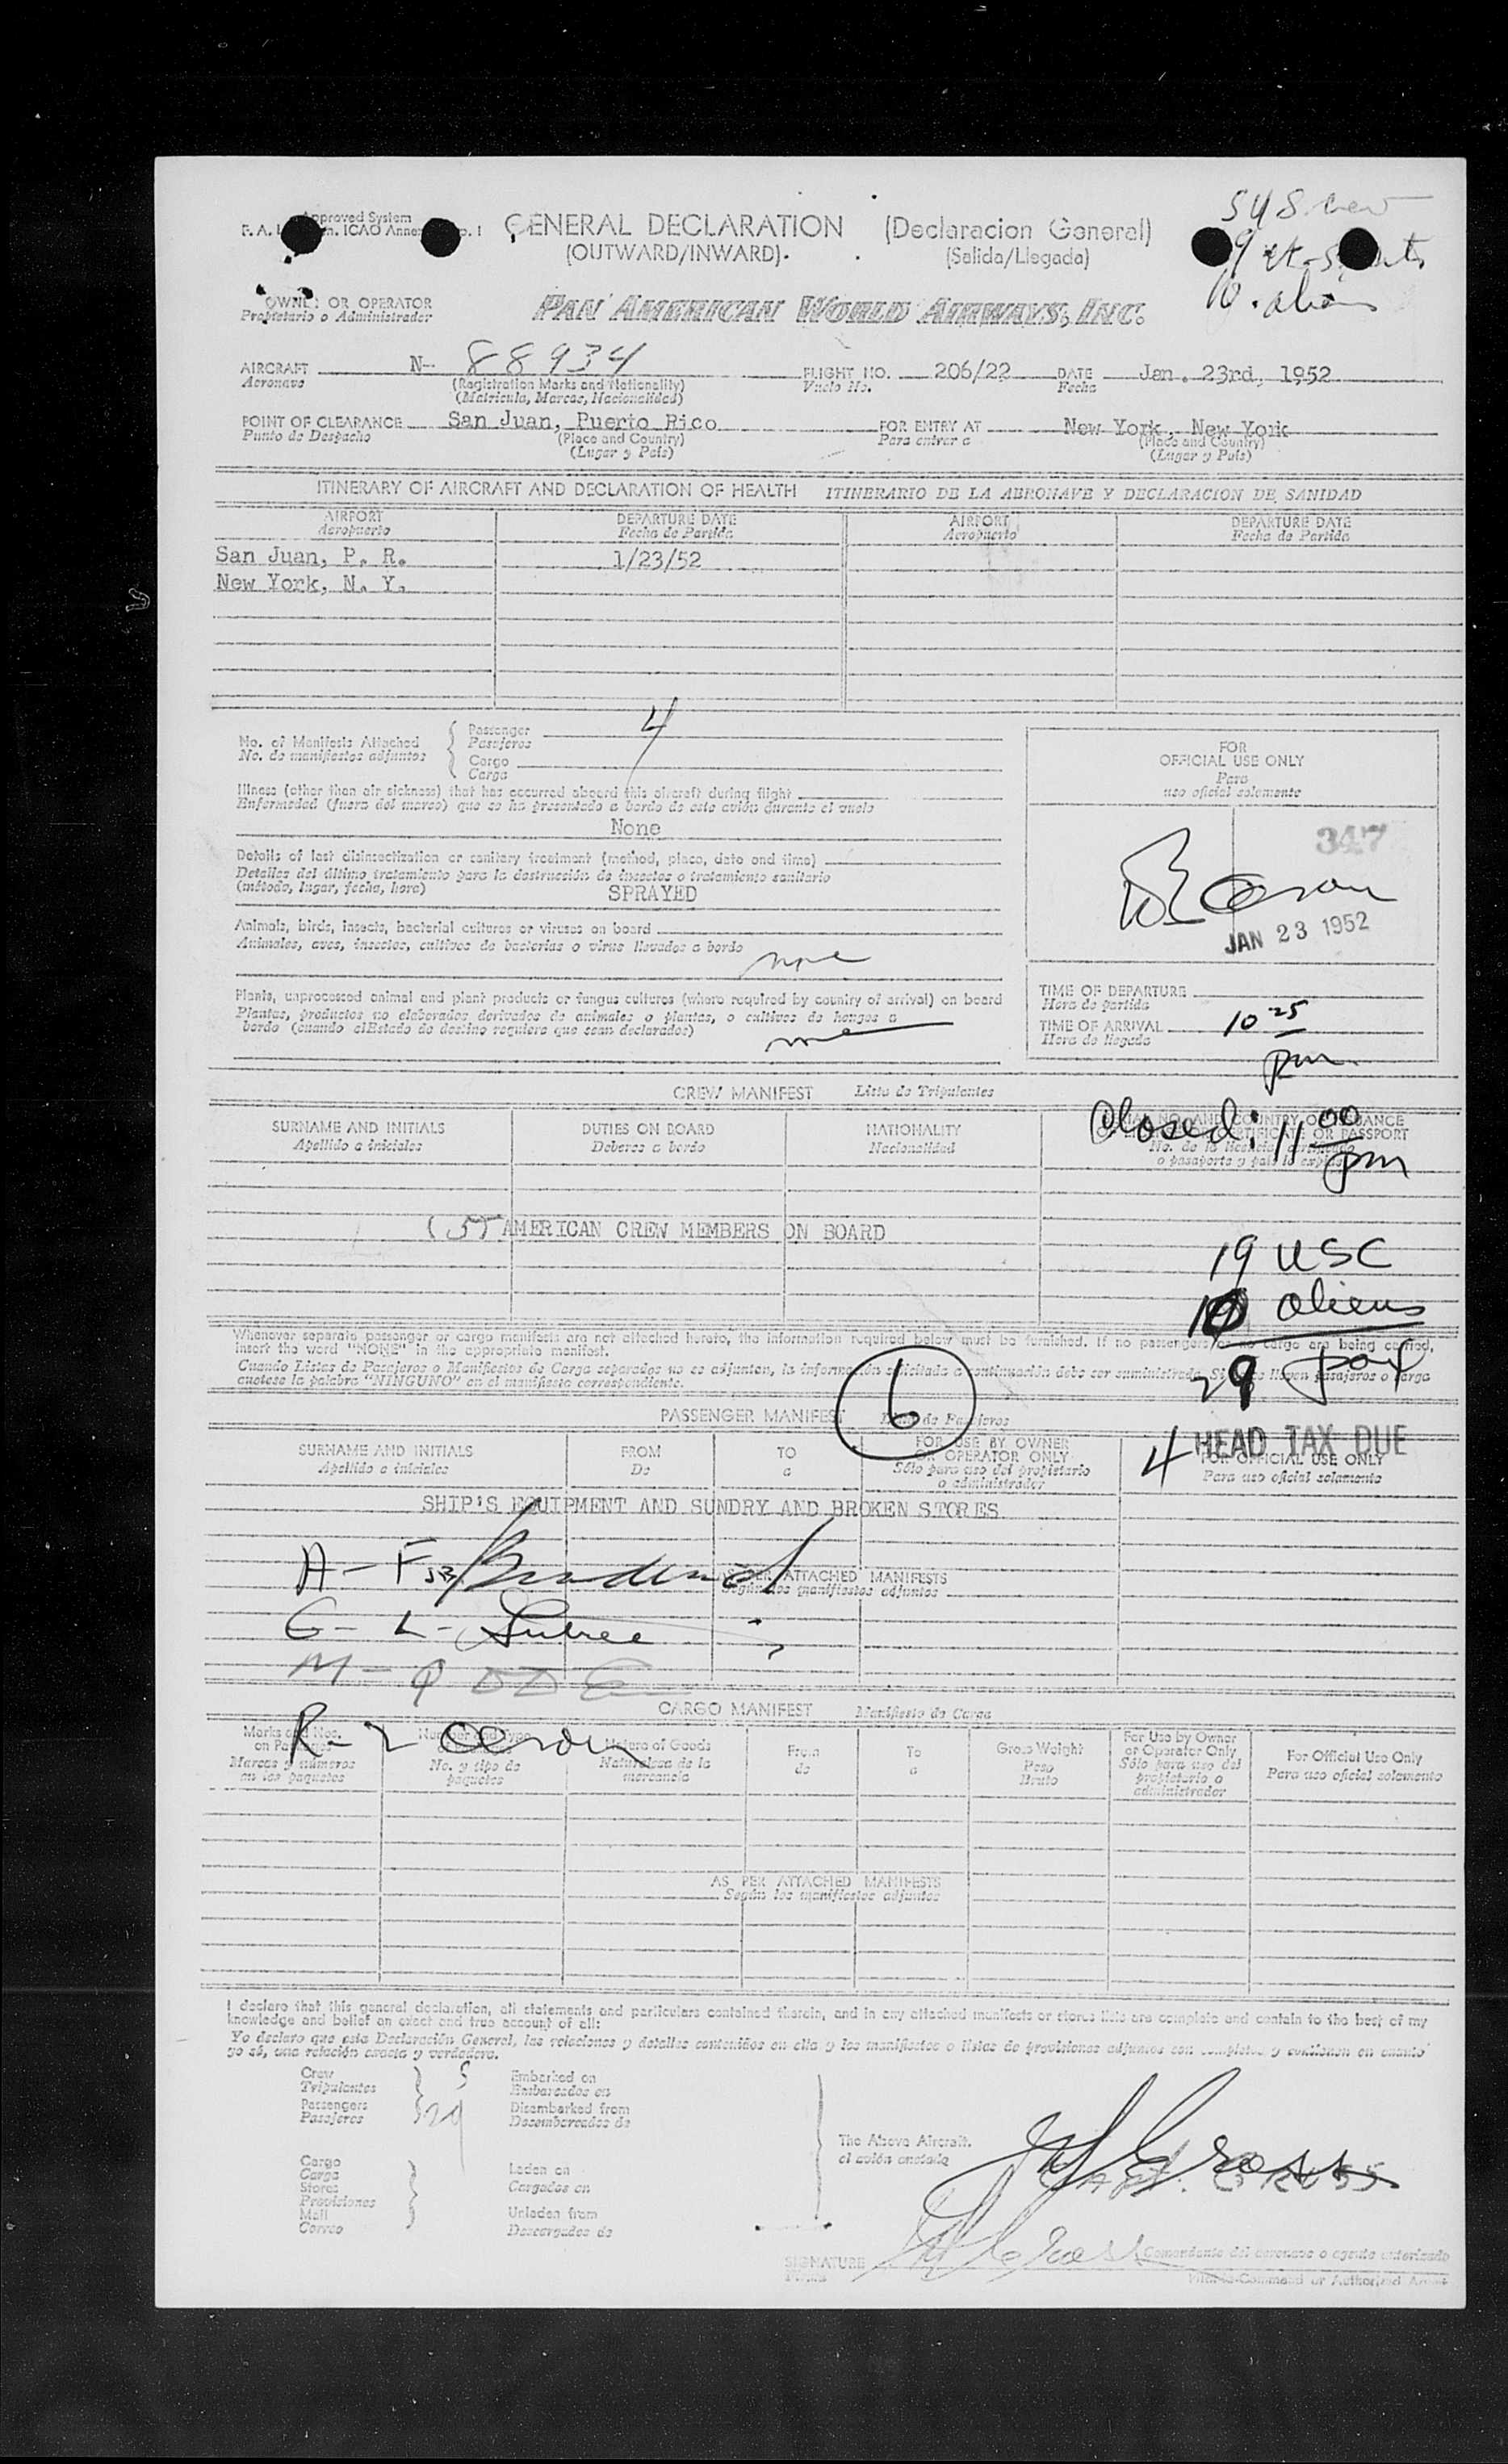 Approved System
GENERAL DECLARATION (Declaracion General)
(OUTWARD/INWARD) (Salida/Llegada)
10 aliens
OWNER OR OPERATOR
Propietario o Administrador
PAN AMERICAN WORLD AIRWAYS, INC.
AIRCRAFT N- 88934 FLIGHT NO. 206/22 DATE Jan. 23rd, 1952
Aeronave (Registration Marks and Nationality) Vuelo No. Fecha
(Matricula, Marcas, Nacionalidad)
POINT OF CLEARANCE San Juan, Puerto Rico FOR ENTRY AT New York, New York
Punto de Despacho (Place and Country) Para entrar a (Place and Country)
(Lugar y Pais) (Lugar y Pais)
ITINERARY OF AIRCRAFT AND DECLARATION OF HEALTH ITINERARIO DE LA AERONAVE Y DECLARACION DE SANIDAD
AIRPORT DEPARTURE DATE AIRPORT DEPARTURE DATE
Aeropuerto Fecha de Partida Aeropuerto Fecha de Partida
San Juan, P. R. 1/23/52
New York, N. Y.
No. of Manifests Attached Passenger 4
No. de manifiestos adjuntos Pasajeros
Cargo
Carga
FOR
OFFICIAL USE ONLY
Para
uso oficial solamente
Illness (other than air sickness) that has occurred aboard this aircraft during flight
Enfermedad (fuera del mareo) que se ha presentado a bordo de este avión durante el vuelo
None
347
Details of last disinsectization or sanitary treatment (method, place, date and time)
Detalles del último tratamiento para la destrucción de insectos o tratamiento sanitario
(método, lugar, fecha, hora)
SPRAYED
JAN 23 1952
Animals, birds, insects, bacterial cultures or viruses on board
Animales, aves, insectos, cultivos de bacterias o virus llevados a bordo
none
Plants, unprocessed animal and plant products or fungus cultures (where required by country of arrival) on board
Plantas, productos no elaborados derivados de animales o plantas, o cultivos de hongos a
bordo (cuando elEstado de destino requiera que sean declarados)
none
TIME OF DEPARTURE
Hora de partida
TIME OF ARRIVAL 10 25
Hora de llegada pm
CREW MANIFEST Lista de Tripulantes
SURNAME AND INITIALS DUTIES ON BOARD NATIONALITY
Apellido e iniciales Deberes a bordo Nacionalidad
Closed: 11 00 pm
(5) AMERICAN CREW MEMBERS ON BOARD
19 USC
10 aliens
29 pax
Whenever separate passenger or cargo manifests are not attached hereto, the information required below must be furnished. If no passengers or no cargo are being carried,
insert the word "NONE" in the appropriate manifest.
Cuando Listas de Pasajeros o Manifiestos de Carga separados no se adjuntan, la información solicitada a continuación debe ser suministrada. Si no se lleven pasajeros o carga
anotese la palabra "NINGUNO" en el manifiesto correspondiente.
6
PASSENGER MANIFEST Lista de Pasajeros
4 HEAD TAX DUE
SURNAME AND INITIALS FROM TO FOR USE BY OWNER OR OPERATOR ONLY FOR OFFICIAL USE ONLY
Apellido e iniciales De a Sólo para uso del propietario o administrador Para uso oficial solamente
SHIP'S EQUIPMENT AND SUNDRY AND BROKEN STORES
AS PER ATTACHED MANIFESTS
Según los manifiestos adjuntos
CARGO MANIFEST Manifiesto de Carga
Marks and Nos. on Packages Number and Type of Packages Nature of Goods From To Gross Weight For Use by Owner or Operator Only For Official Use Only
Marcas y números en los paquetes No. y tipo de paquetes Naturaleza de la mercancia de a Peso Bruto Sólo para uso del propietario o administrador Para uso oficial solamente
AS PER ATTACHED MANIFESTS
Según los manifiestos adjuntos
I declare that this general declaration, all statements and particulars contained therein, and in any attached manifests or stores lists are complete and contain to the best of my
knowledge and belief an exact and true account of all:
Yo declaro que esta Declaración General, las relaciones y detalles contenidos en ella y los manifiestos o listas de provisiones adjuntos son completos y contienen en cuanto
yo sé, una relación exacta y verdadera.
Crew 5 Embarked on
Tripulantes Embarcados en
Passengers 29 Disembarked from
Pasajeros Desembarcados de
The Above Aircraft.
el avión anotado
CAPT. GROSS
Cargo
Carga Laden on
Stores Cargados en
Provisiones
Mail Unladen from
Correo Descargados de
SIGNATURE
Firma
Comandante del aeronave o agente autorizado
Pilot-in-Command or Authorized Agent